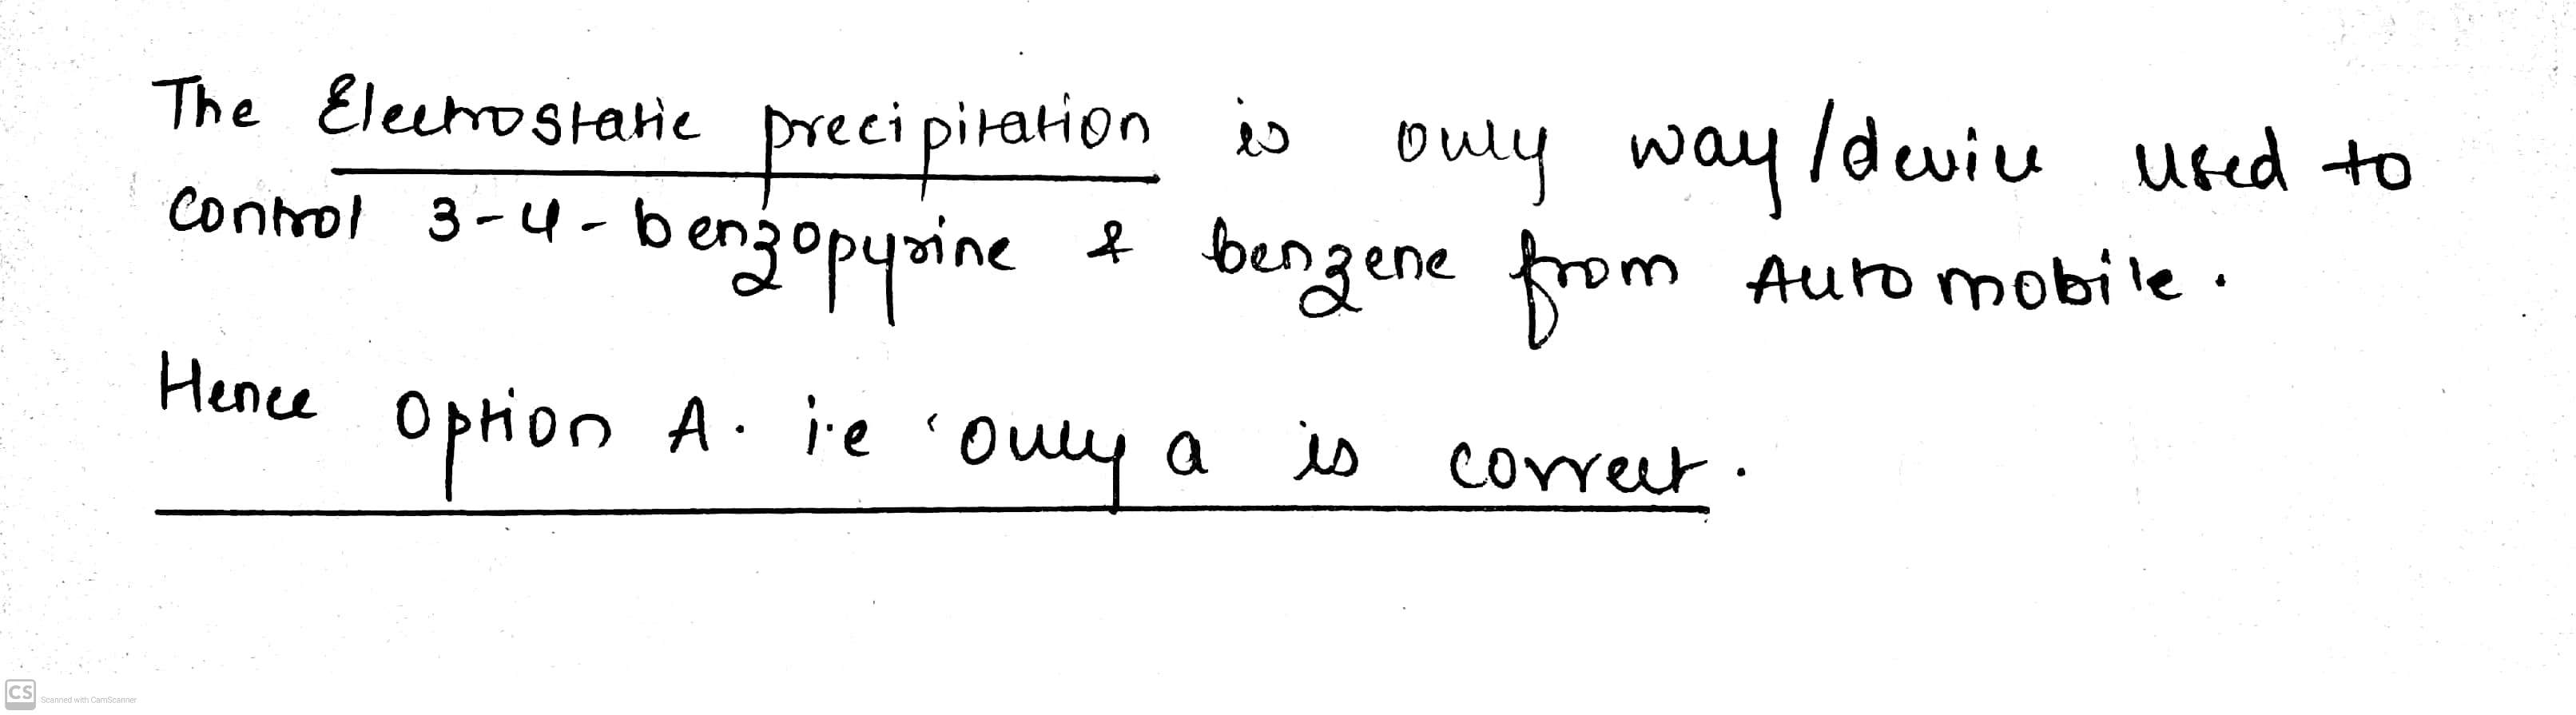 The Electrostatic precipitation is only way/device used to
control 3-4-benzopyrine & benzene from Automobile.
Hence Option A. i.e 'only a is correct.
CS Scanned with CamScanner